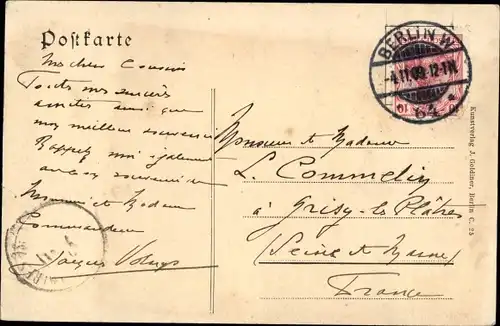 Postkarte
BERLIN W
4.11.09.12-1N.
64
Mon cher Cousin
Toutes mes sincères
amitiés ainsi que
mes meilleurs souvenirs
Rappelez moi également
au bon souvenir de
Monsieur et Madame
Commandeur
Jacques
Monsieur et Madame
L. Commelin
à Grisy-les Plâtres
(Seine et Marne)
France
Kunstverlag J. Goldiner, Berlin C. 25